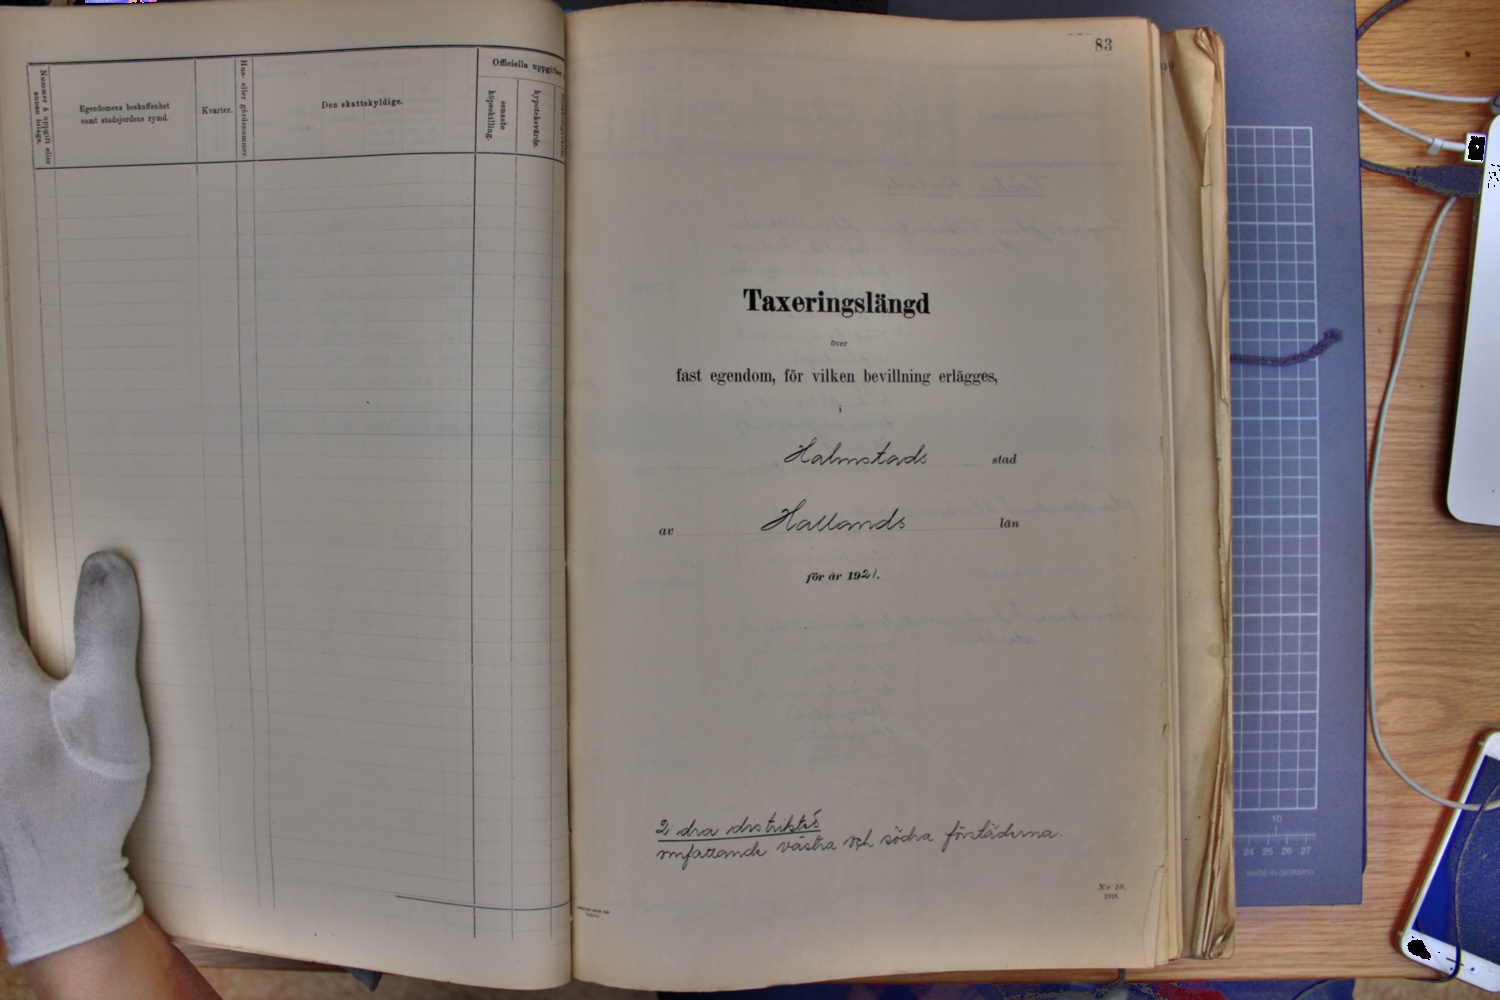 Nummer å uppgift eller
annan bilaga.
Egendomens beskaffenhet
samt stadsjordens rymd.
Kvarter.
Hus- eller gårdsnummer.
Den skattskyldige.
Officiella uppgifter
senaste
köpeskilling.
hypoteksvärde.
83
Taxeringslängd
över
fast egendom, för vilken bevillning erlägges,
i
Halmstads stad
av Hallands län
för år 1921.
2. dra distriktet
omfattande västra och södra förstäderna.
N:r 10.
1918.
10
24 25 26 27
MADE IN GERMANY